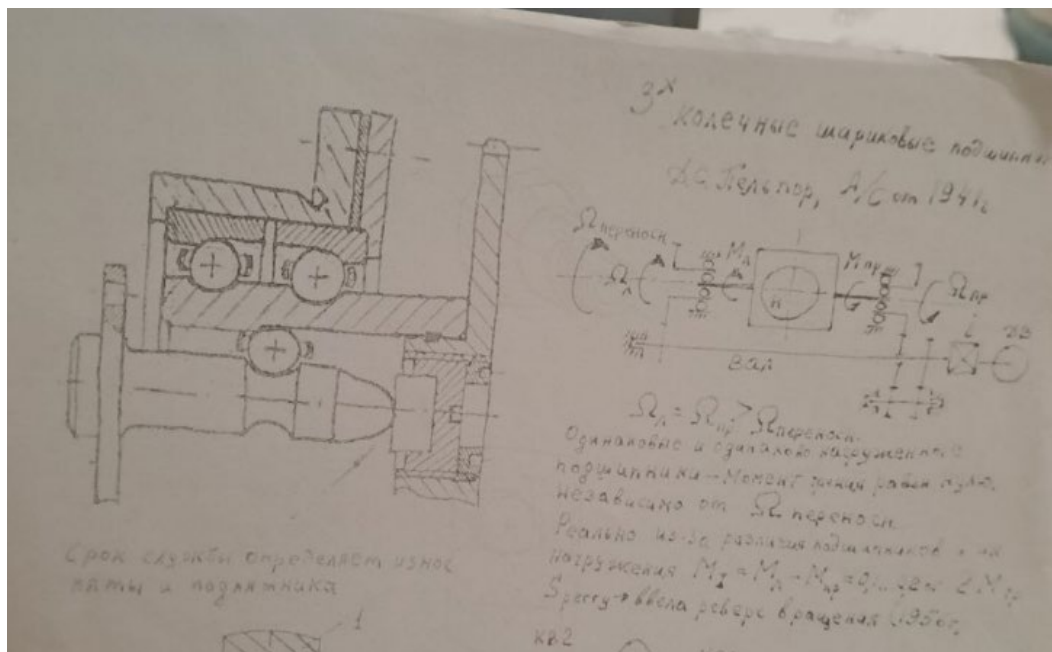 3х колечные шариковые подшипни
Д.С. Пельпор, А/С от 1941г
Ω переносн
Ω л
М л
М пр
Ω пр
H
ДВ
Вал
Ω л = Ω пр > Ω переносн.
Одинаковые и одинаково нагруженные
подшипники – Момент трения равен нулю,
независимо от Ω переносн.
Реально из-за различия подшипников и их
нагружения M = M л – M пр = 0,
Sperry → ввела реверс вращения (1956г,
Срок службы определяет износ
пяты и подпятника
1
кв2